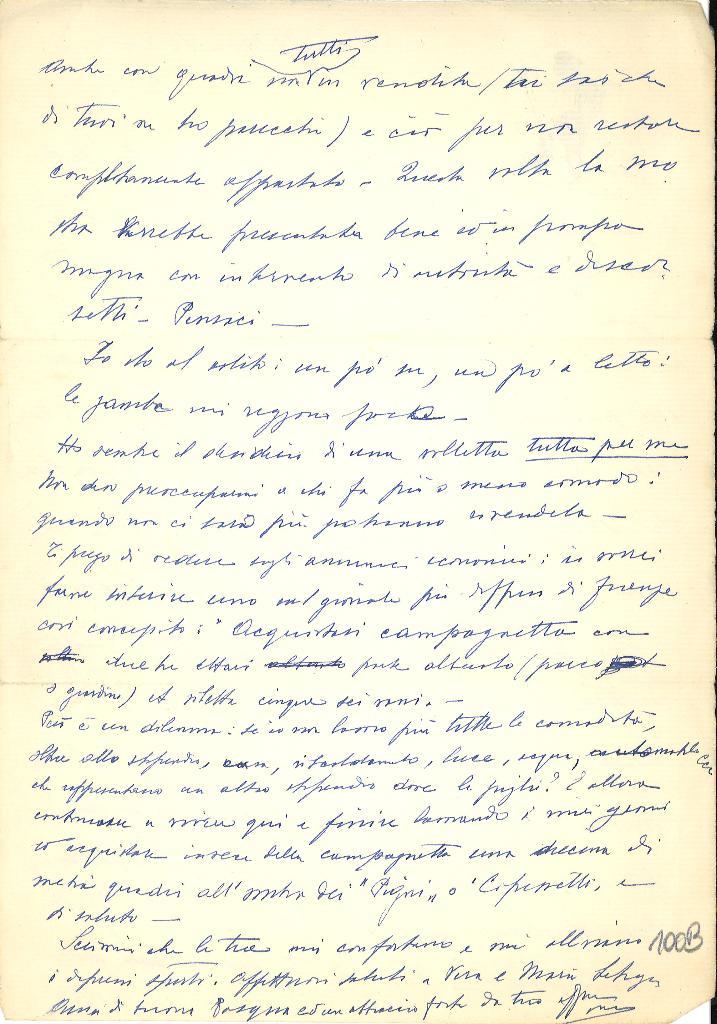 tutti
Anche con quadri non in vendita (tu sai che
di tuoi ne ho parecchi) e ciò per non restare
completamente appartato - Questa volta la mo
stra verrebbe presentata bene ed in pompa
magna con intervento di autorità e discor
setti - Pensaci -
Io sto al solito: un pó su, un pò a letto:
le gambe mi reggono poco -
Ho sempre il desiderio di una villetta tutta per me
Non devo preoccuparmi a chi fa più o meno comodo:
quando non ci sarò più potranno rivenderla -
Ti prego di vedere sugli annunci economici: io vorrei
farne inserire uno sul giornale più diffuso di Firenze
così concepito: "Acquistasi campagnetta con
due tre ettari parte alberato (parco
o giardino) et villetta cinque sei vani. -
Però è un dilemma: se io non lavoro più tutte le comodità,
oltre allo stipendio, casa, riscaldamento, luce, acqua, automobile ecc
che rappresentano un altro stipendio dove le piglio? E allora
continuare a vivere qui e finire lavorando i miei giorni
ed acquistare invece della campagnetta una decina di
metri quadri all'ombra dei "Pigni" o' Cipressetti, e
di saluto -
Scrivimi che le tue mi confortano e mi allevano
i depressi spiriti. Affettuosi saluti a Vera e Maria
Auguri di buona Pasqua ed un abbraccio forte da tuo
100B